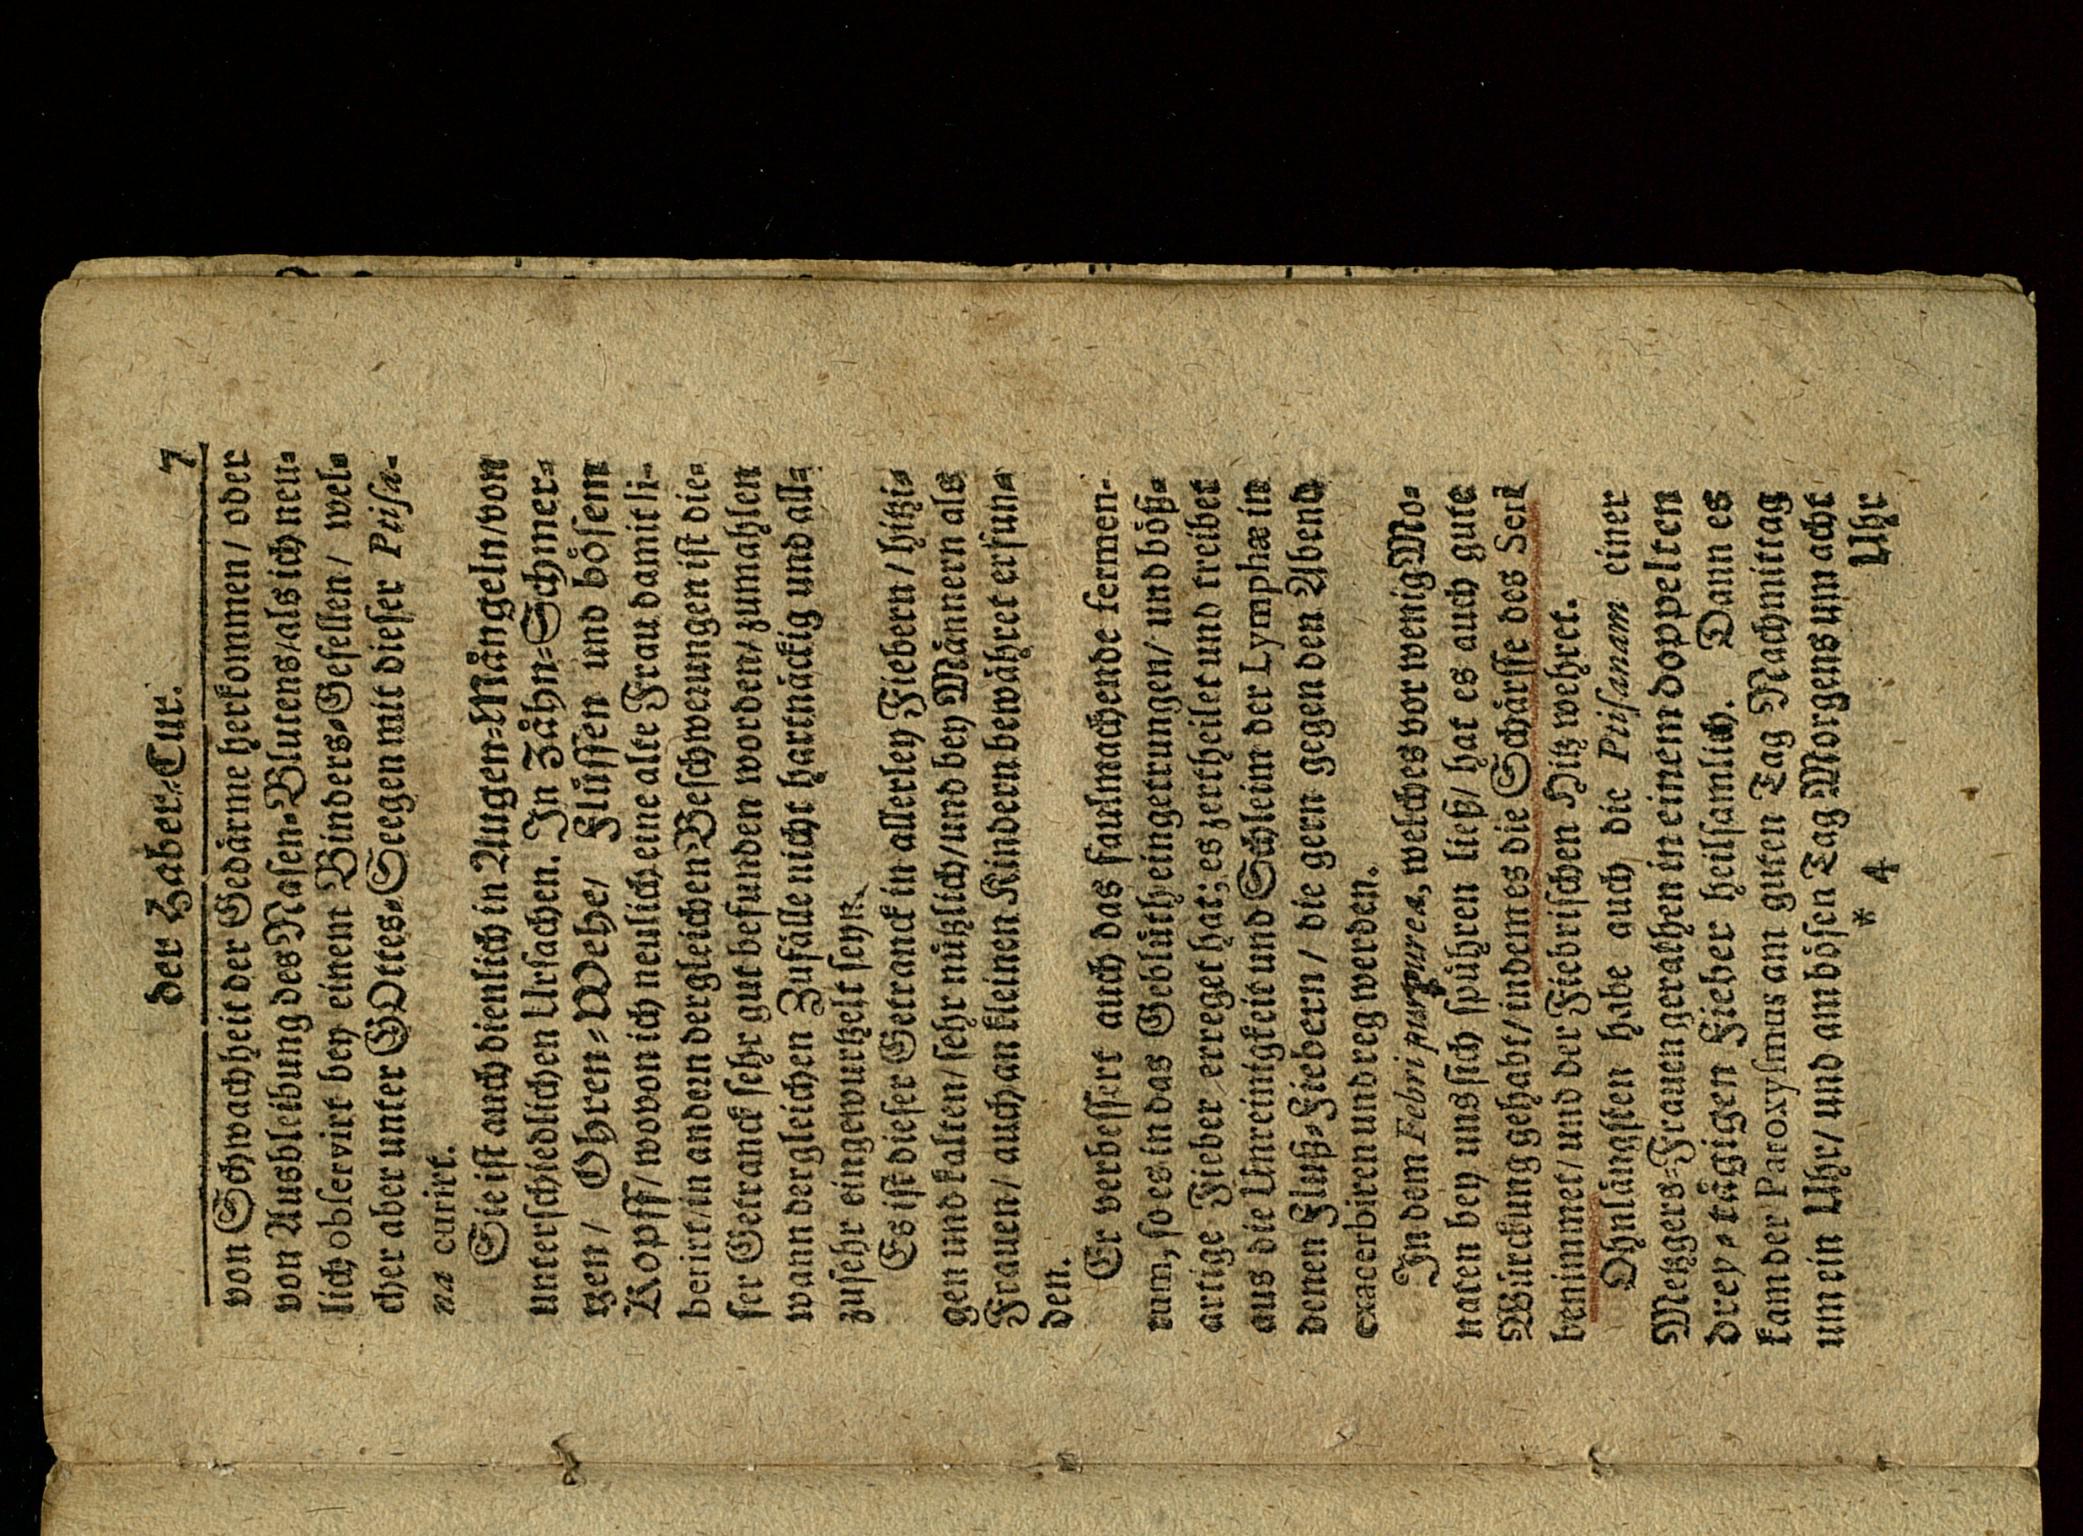 der Haber-Cur. 7
von Schwachheit der Gedärme herkommen / oder
von Ausbleibung des Nasen-Blutens/als ich neu-
lich observirt bey einem Binders-Gesellen / wel-
cher aber unter GOttes-Seegen mit dieser Ptisa-
na curirt.
Sie ist auch dienlich in Augen-Mängeln/von
unterschiedlichen Ursachen. In Zähn-Schmer-
tzen / Ohren-Wehe/ Flüssen und bösem
Kopff/ wovon ich neulich eine alte Frau damit li-
berirt/in andern dergleichen Beschwerungen ist die-
ser Getranck sehr gut befunden worden/ zumahlen
wann dergleichen Zufälle nicht hartnäckig und all-
zusehr eingewurtzelt seyn.
Es ist dieser Getranck in allerley Fiebern / hitzi-
gen und kalten/ sehr nützlich/und bey Männern als
Frauen / auch an kleinen Kindern bewähret erfun-
den.
Er verbessert auch das faulmachende fermen-
tum, so es in das Geblüth eingetrungen/ und böß-
artige Fieber erreget hat; es zertheilet und treibet
aus die Unreinigkeit und Schleim der Lymphæ in
denen Fluß-Fiebern / die gern gegen den Abend
exacerbiren und reg werden.
In dem Febri purpurea, welches vor wenig Mo-
naten bey uns sich spühren ließ/ hat es auch gute
Würckung gehabt/ indem es die Schärffe des Seri
benimmet/ und der Fiebrischen Hitz wehret.
Ohnlängsten habe auch die Ptisanam einer
Metzgers-Frauen gerathen in einem doppelten
drey-tägigen Fieber heilsamlich. Dann es
kam der Paroxysmus am guten Tag Nachmittag
um ein Uhr/ und am bösen Tag Morgens um acht
* 4 Uhr